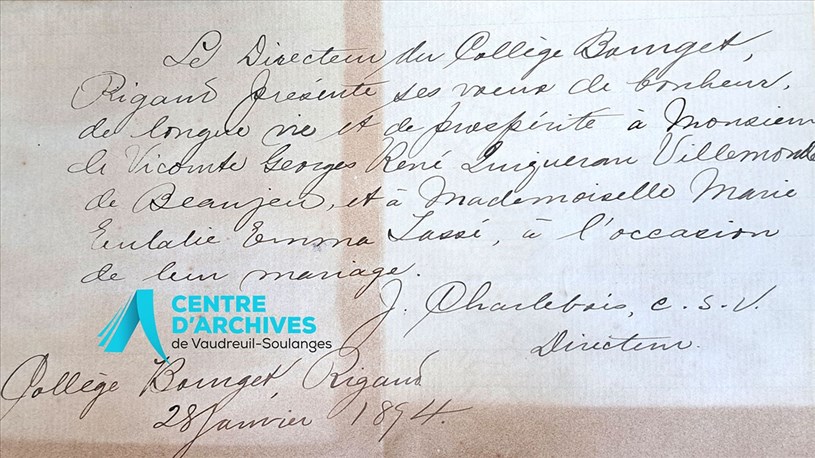 Le Directeur du Collège Bourget,
Rigaud présente ses vœux de bonheur,
de longue vie et de prospérité à Monsieur
le Vicomte Georges René Quiqueran Villemonde
de Beaujeu, et à Mademoiselle Marie
Eulalie Emma Lassé, à l'occasion
de leur mariage.
J. Charlebois, c.s.v.
Directeur.
CENTRE
D'ARCHIVES
de Vaudreuil-Soulanges
Collège Bourget, Rigaud
28 Janvier 1894.